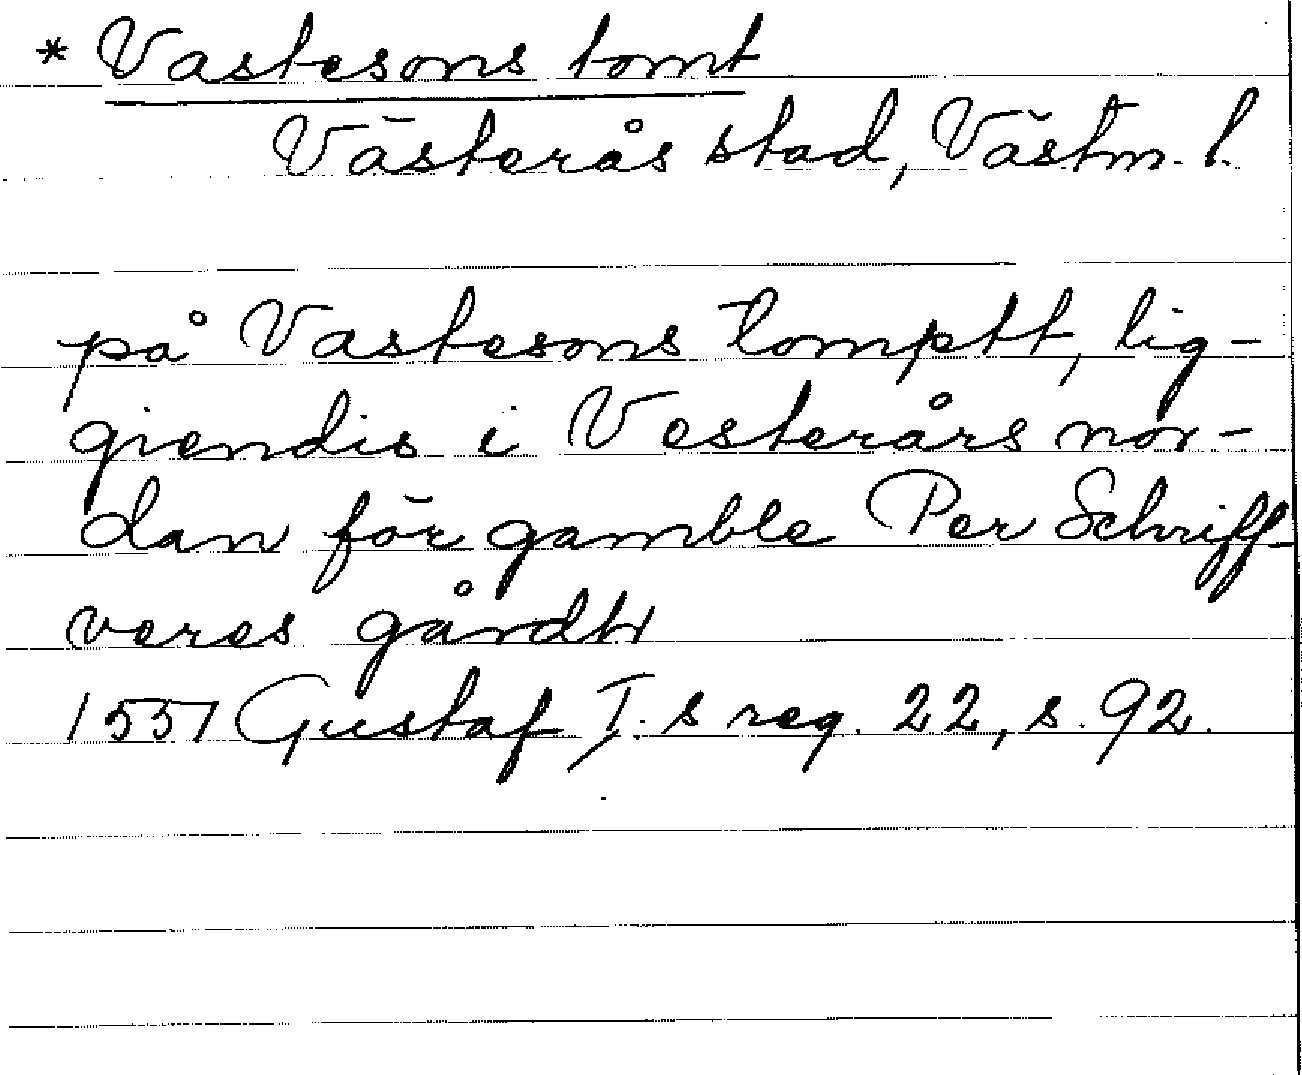 * Vastesons tomt
Västerås stad, Västm. l.
på Vastesons tomptt, lig-
giendis i Vesterårs nor-
dan för gamble Per Schriff-
veres gårdtt
1551 Gustaf I:s reg. 22, s. 92.